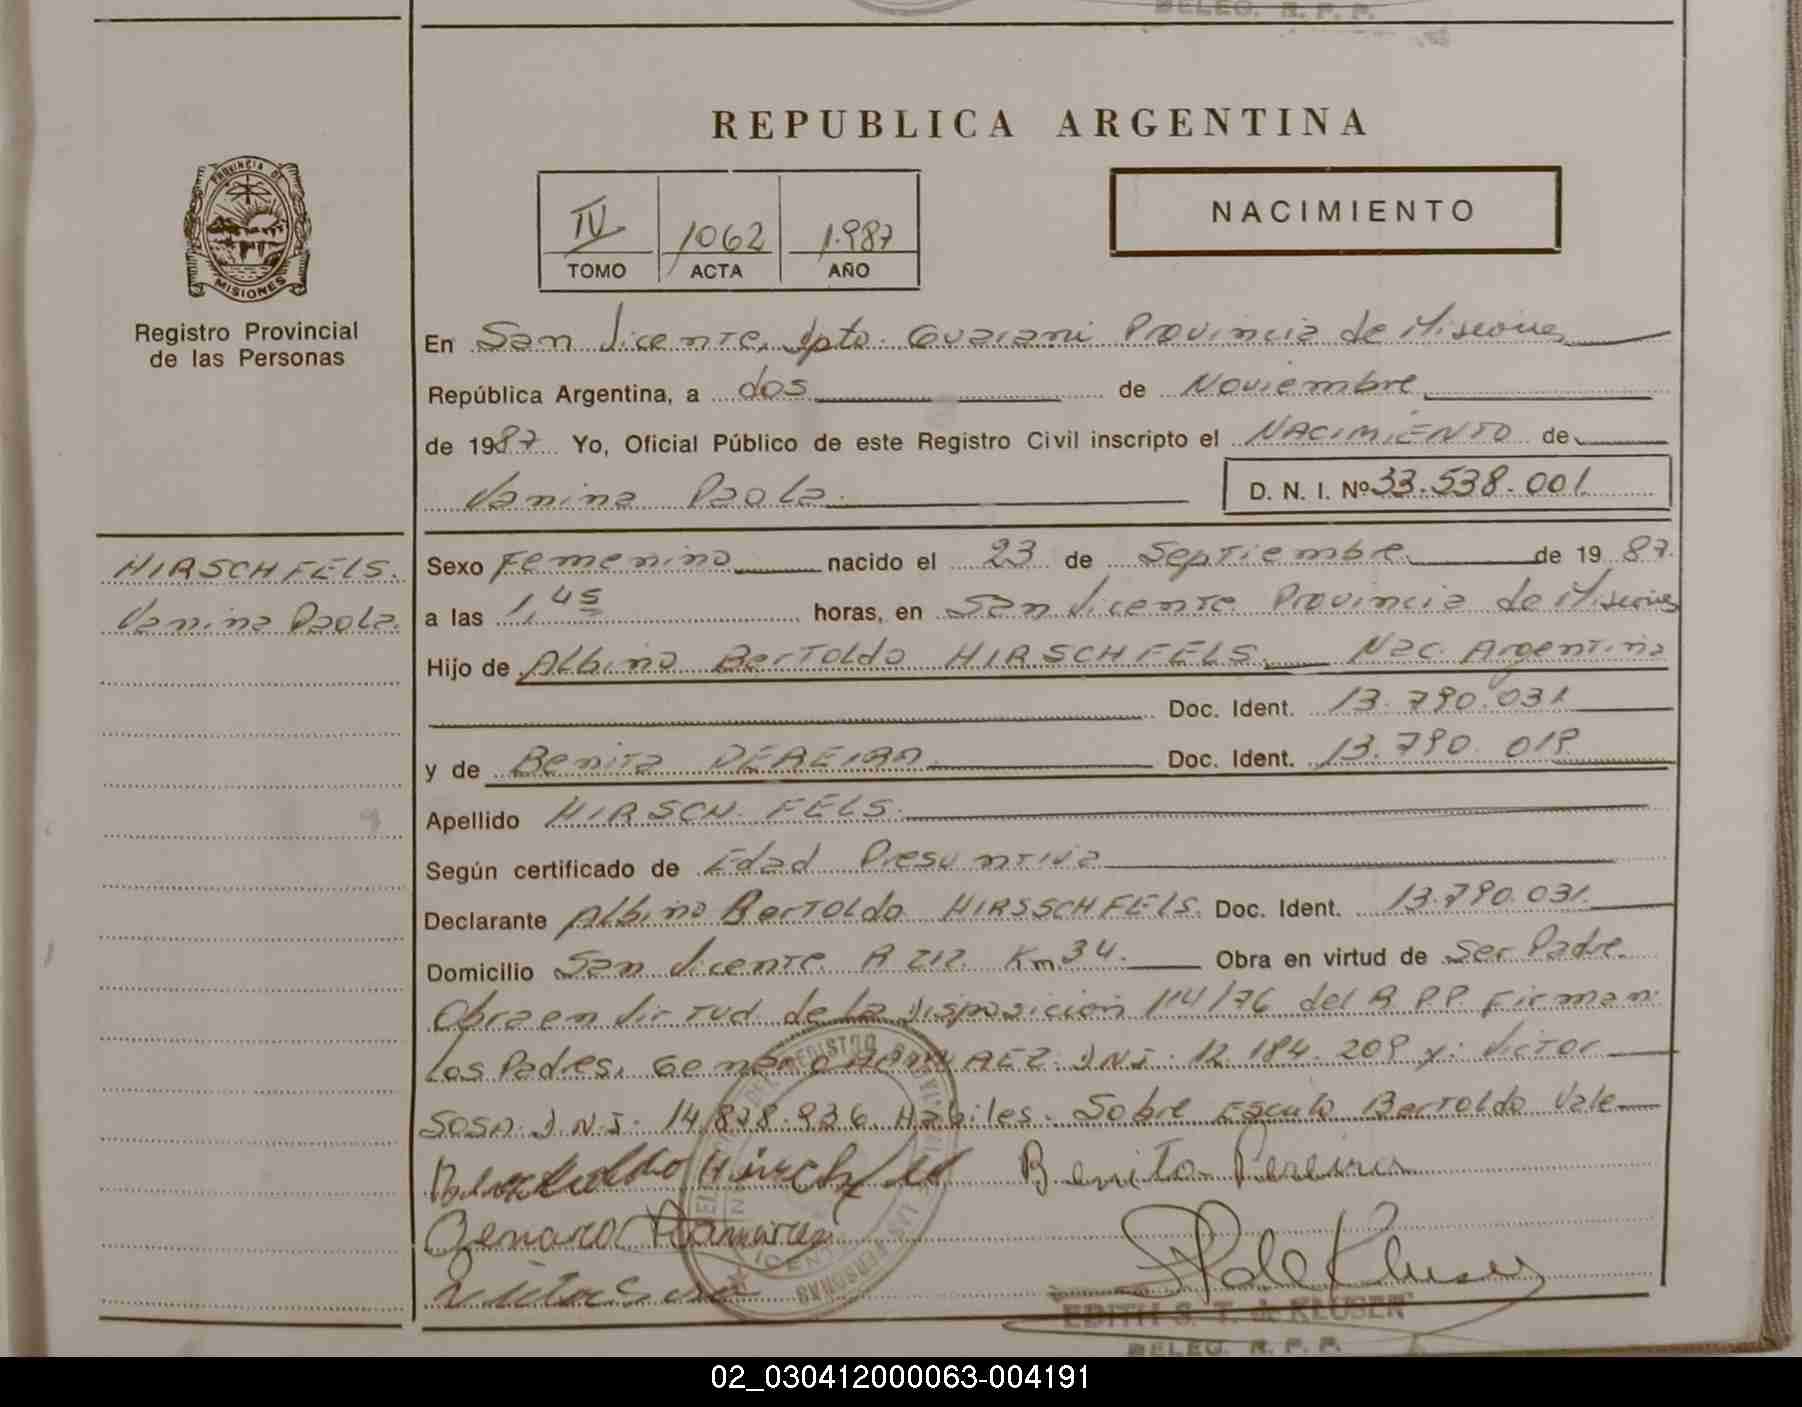 DELEG. R. P. P.
REPUBLICA ARGENTINA
PROVINCIA DE
MISIONES
Registro Provincial
de las Personas
IV 1062 1.987
TOMO ACTA AÑO
NACIMIENTO
En San Vicente, dpto. Guarani Provincia de Misiones
República Argentina, a dos de Noviembre
de 1987 Yo, Oficial Público de este Registro Civil inscripto el NACIMIENTO de
Vanina Paola. D. N. I. Nº 33.538.001
HIRSCHFELS.
Vanina Paola.
Sexo Femenino nacido el 23 de Septiembre de 1987.
a las 1,45 horas, en San Vicente Provincia de Misiones
Hijo de Albino Bertoldo HIRSCHFELS. Nac. Argentina
Doc. Ident. 13.790.031
y de Benita PEREIRA Doc. Ident. 13.790.019
Apellido HIRSCH FELS.
Según certificado de Edad Presuntiva
Declarante Albino Bertoldo HIRSSCHFELS. Doc. Ident. 13.790.031.
Domicilio San Vicente R 212. Km 34. Obra en virtud de Ser Padre.
Obra en Virtud de la Disposición 114/76 del R.P.P. Firman:
Los Padres, Genaro RAMIREZ. DNI. 12.184.209 y: Victor
SOSA. D.N.I. 14.878.936. Habiles. Sobre Bertoldo Vale
Benita Pereira
Genaro Ramirez
EDITH S. T. de KLUSER
DELEG. R. P. P.
02_030412000063-004191